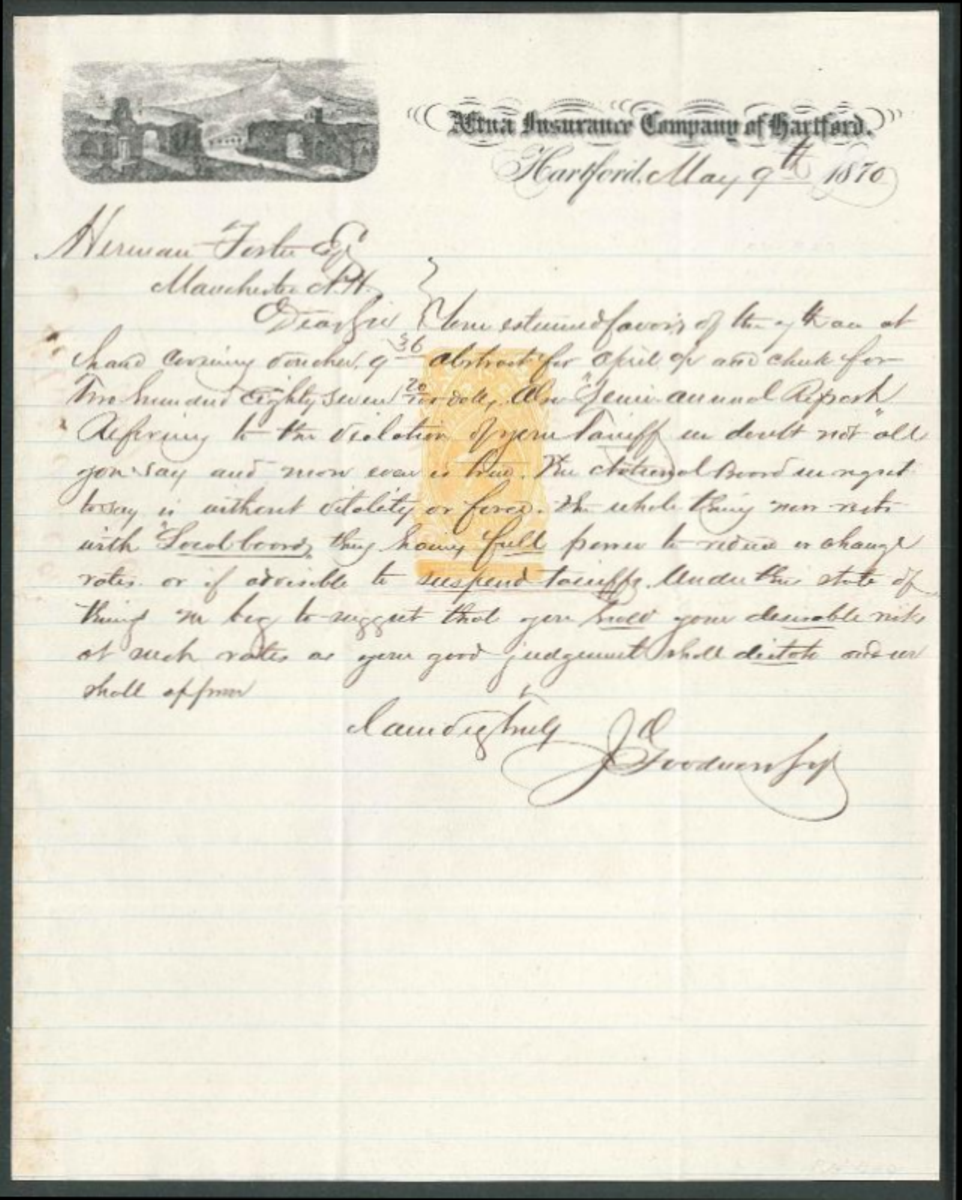 Ætna Insurance Company of Hartford.
Hartford, May 9th 1870
Herman Foster Esq
Manchester N.H.
Dear Sir } Your esteemed favors of the 7th are at
hand covering voucher, 9 36 abstract for April a/c and check for
Two hundred Eighty seven 20/100 dolls, Also "Semi annual Report"
Referring to the violation of your Tariff we doubt not all
you say and more even is true. The National Board we regret
to say is without vitality or force. The whole thing now rests
with "Local boards, they having full power to reduce or change
rates or if advisible to suspend tariffs. Under this state of
things we beg to suggest that you hold your desirable risks
at such rates as your good judgement shall dictate and we
shall approve
Yours truly
J Goodnow Secy